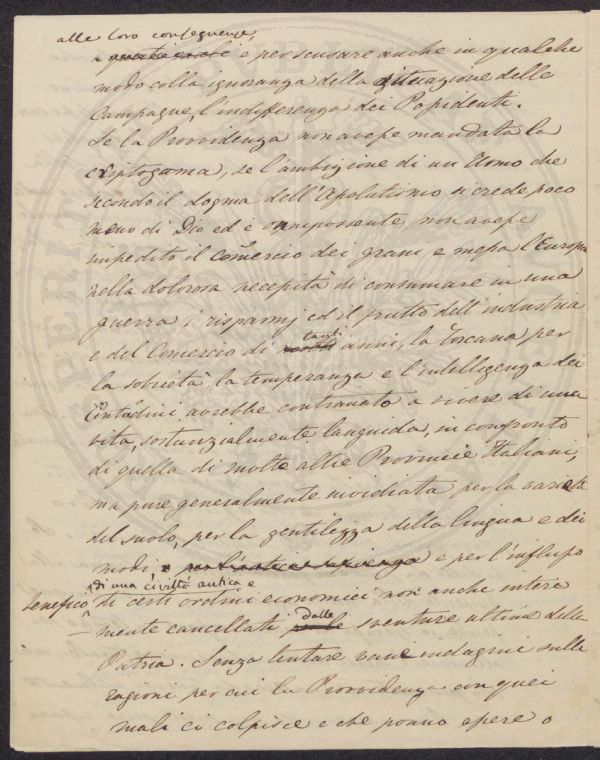 alle loro conseguenze,
e per scusare anche in qualche
modo colla ignoranza della situazione delle
Campagne, l'indifferenza dei Possidenti.
Se la Provvidenza non avesse mandata la
criptogama, se l'ambizione di un Uomo che
secondo il dogma dell'Assolutismo si crede poco
meno di Dio ed è onnipossente non avesse
impedito il Comercio dei grani e messa l'Europa
nella dolorosa necessità di consumare in una
guerra i risparmj ed il frutto dell'industria
e del Comercio di tanti anni, la Toscana per
la sobrietà la temperanza e l'intelligenza dei
Contadini avrebbe continuato a vivere di una
vita, sostanzialmente languida, in confronto
di quella di molte altre Provincie Italiani,
ma pure generalmente invidiata per la varietà
del suolo, per la gentilezza della lingua e dei
modi e per l'influsso
di una civiltà antica e
benefico di certi ordini economici non anche intera
mente cancellati dalle sventure ultime della
Patria. Senza tentare vane indagini sulle
ragioni per cui la Provvidenza con quei
mali ci colpisce e che ponno essere o